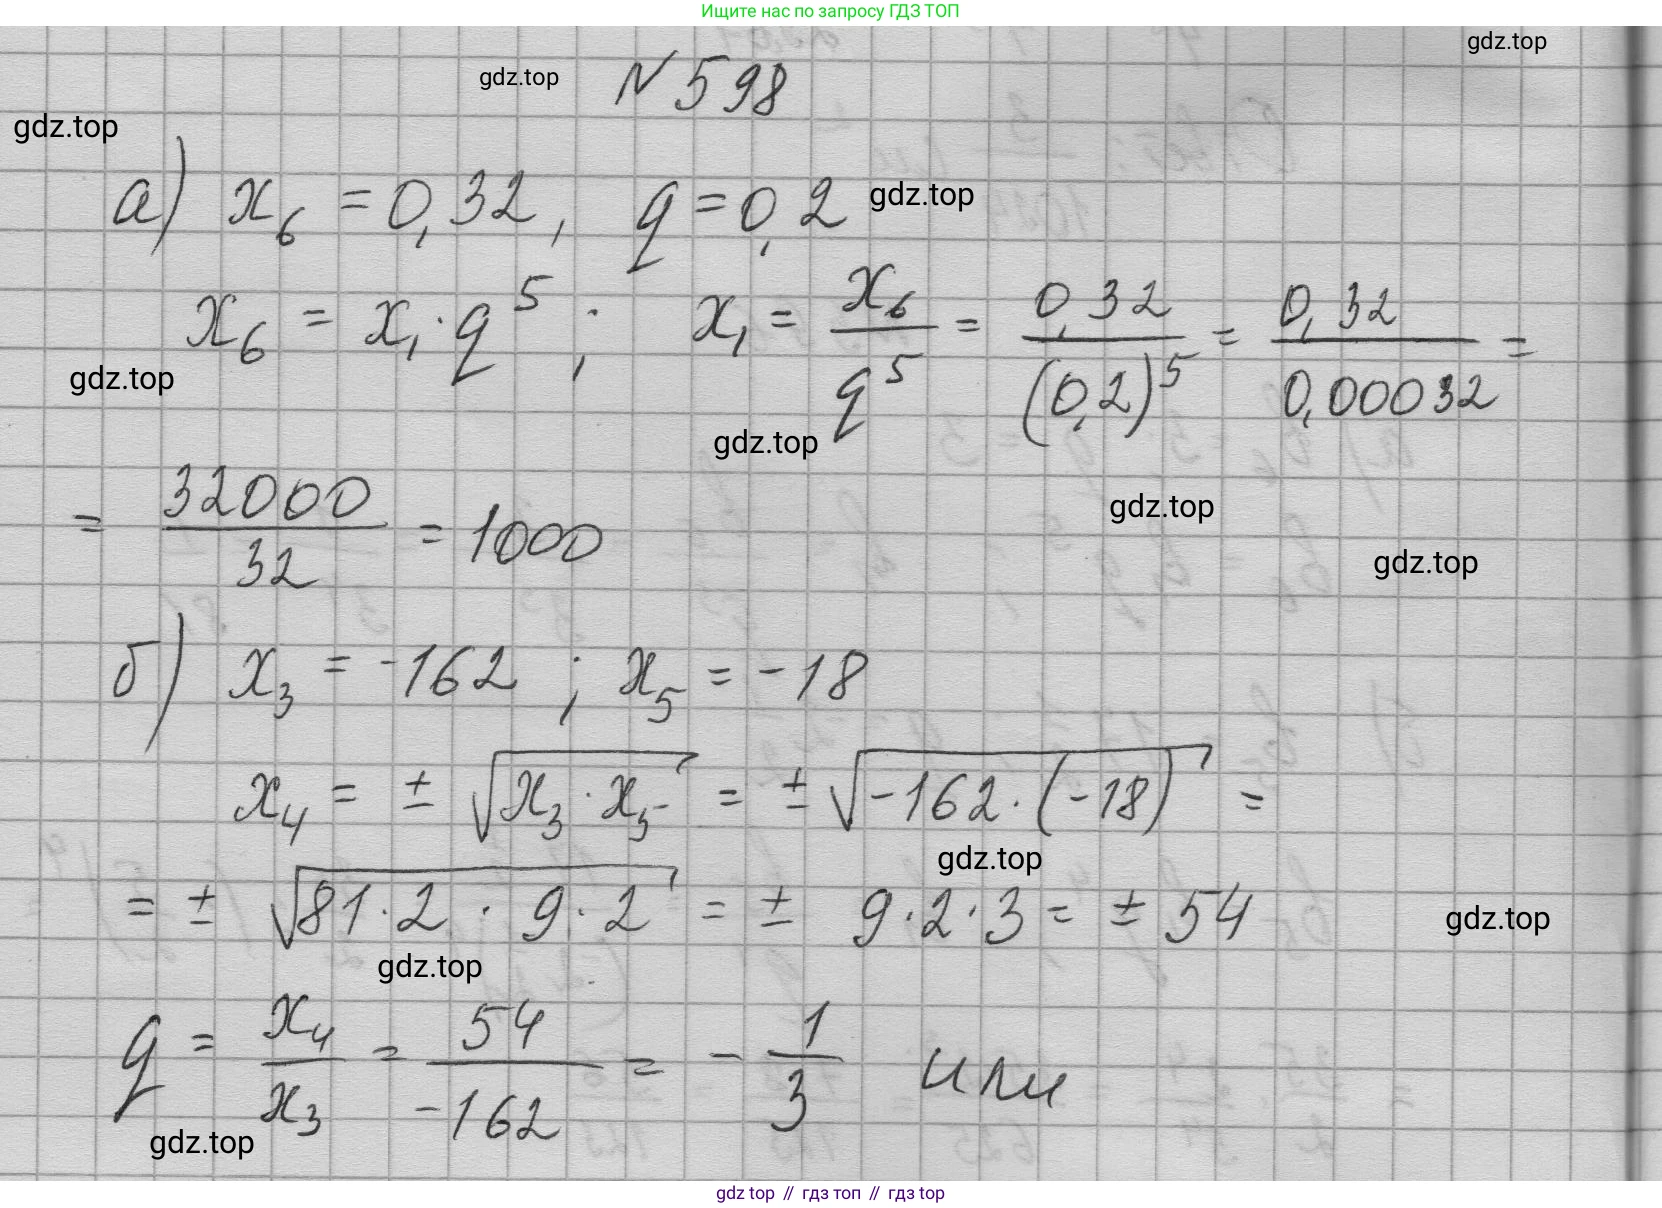 Ищите нас по запросу ГДЗ ТОП
gdz.top
gdz.top № 598
gdz.top
а) x₆ = 0,32, q = 0,2 gdz.top
x₆ = x₁ · q⁵ ; x₁ = x₆/q⁵ = 0,32/(0,2)⁵ = 0,32/0,00032 =
gdz.top
gdz.top
= 32000/32 = 1000
gdz.top
gdz.top
б) x₃ = -162 ; x₅ = -18
x₄ = ± √(x₃ · x₅) = ± √(-162 · (-18)) =
gdz.top
= ± √(81 · 2 · 9 · 2) = ± 9 · 2 · 3 = ± 54
gdz.top
gdz.top
q = x₄/x₃ = 54/-162 = - 1/3 или
gdz.top
gdz top // гдз топ // gdz top